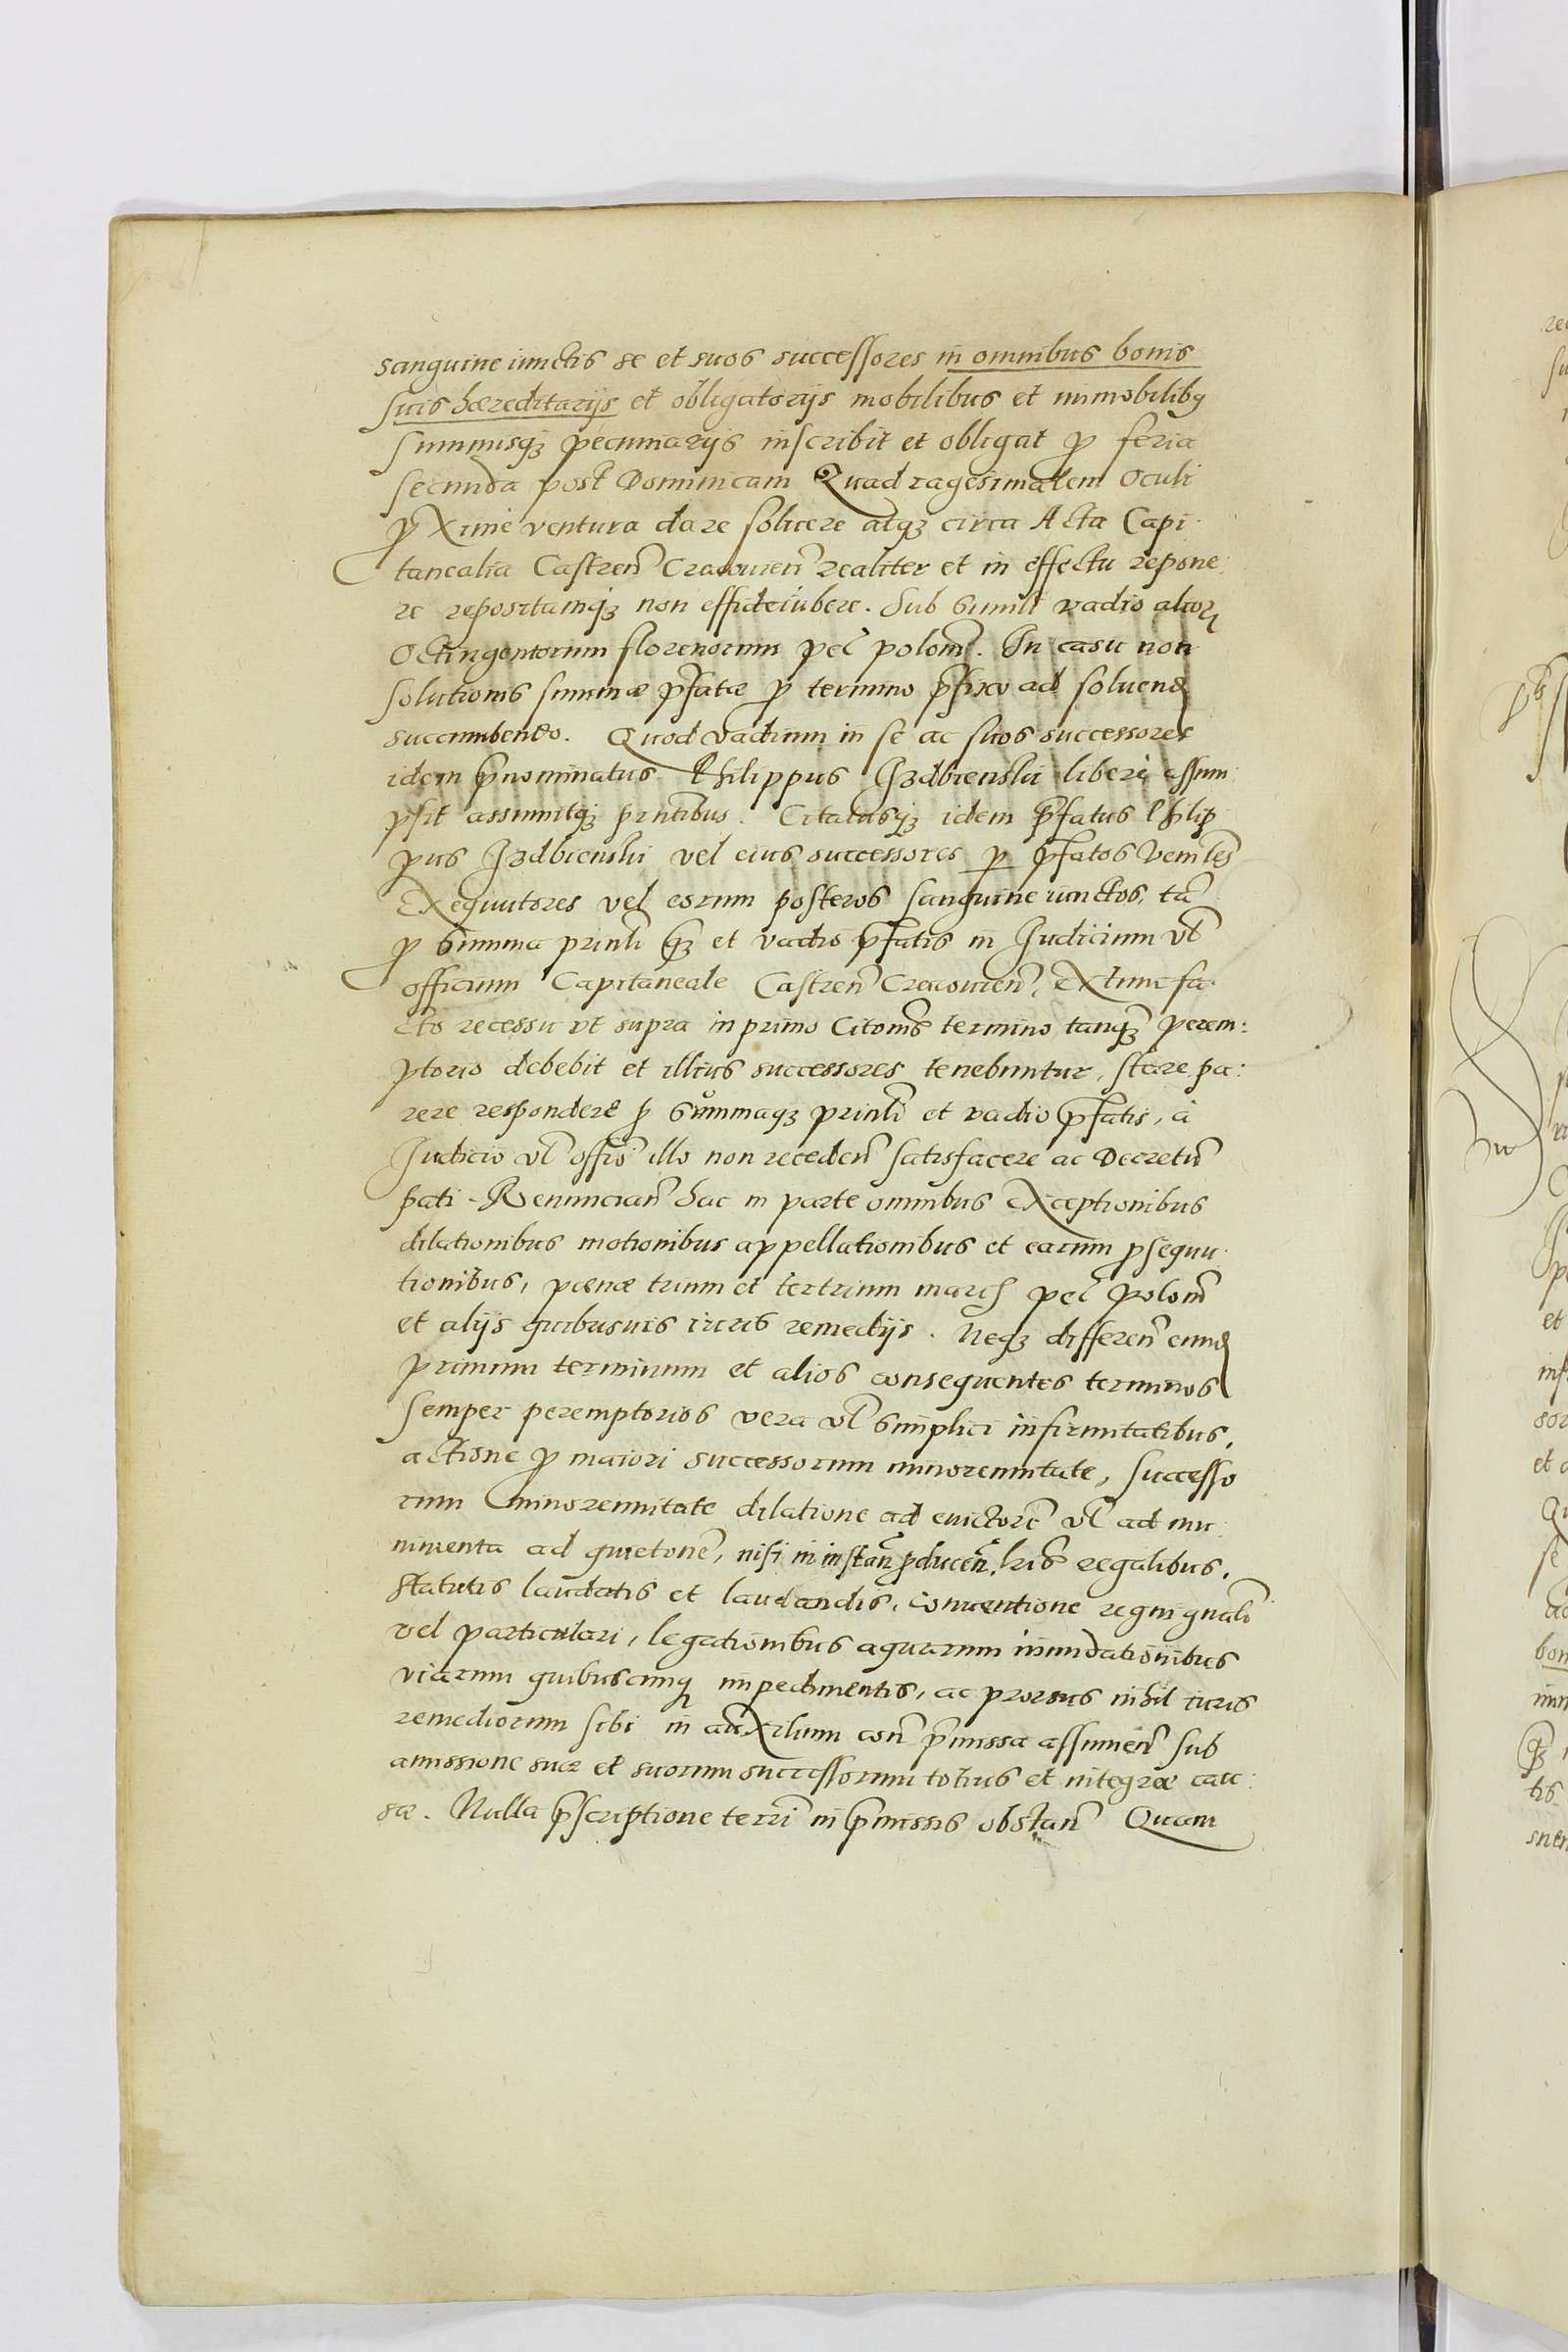 sanguine iunctis se et suos successores in omnibus bonis
suis hæreditarijs et obligatorijs mobilibus et immobilibꝯ
summisqꝫ pecuniarijs inscribit et obligat ꝓ feria
secunda post Dominicam Quadragesimalem Oculi
ꝓxime ventura dare soluere atqꝫ circa Acta Capi
tanealia Castren̄ Cracouien̄ realiter et in effectu repone
re repositamqꝫ non effideiubere. Sub simili vadio alioꝝ
Octingentorum florenorum pec̄ polon̄. In casu non
solutionis summæ p̄fatæ ꝓ termino p̄fixo ad soluend
succumbendo. Quod vadium in se ac suos successores
idem p̄nominatus Philippus Jzdbienski libere assum
psit assumitqꝫ pn̄tibus. Citatusqꝫ idem p̄fatus Philip
pus Jzdbienski vel eius successores ꝑ p̄fatos
Exequutores vel eorum posteros sanguine iunctos, tā
ꝓ summa prinl̄i qꝫ et vadio p̄fatis in Judicium vl̄
officium Capitaneale Castren̄ Cracouien̄, Extunc fa
cto recessu vt supra in primo Citōnis termino tanqꝫ perem:
ptorio debebit et illius successores tenebuntur, stare pa:
rere respondere ꝓ summaqꝫ prinl̄i et vadio p̄fatis, à
Judicio vl̄ offio illo non receden̄ satisfacere ac Decretū
pati. Renuncian̄ hac in parte omnibus exceptionibus
dilationibus motionibus appellationibus et earum ꝓsequu
tionibus, pœnæ trium et tertrium marcs pec̄ Polon̄
et alijs quibusuis iuris remedijs. Neqꝫ differen̄ eund
primum terminum et alios consequentes terminos
semper peremptorios vera vl̄ simplici infirmitatibus,
actione ꝓ maiori successorum minorennitate, successo
rum minorennitate dilatione ad euictorē vl̄ ad mu
nimenta ad quietonē, nisi in instan̄ ꝓducen̄, lr̄is regalibus,
statutis laudatis et laudandis, conuentione regni gn̄ali
vel particulari, legationibus aquarum inundationibus
viarum quibuscunqꝫ impedimentis, ac prorsus nihil iuris
remediorum sibi in auxilium con̄ p̄missa assumen̄ sub
amissione suæ et suorum successorum totius et integræ cau:
sæ. Nulla p̄scriptione terrī in p̄missis obstan̄ Quam